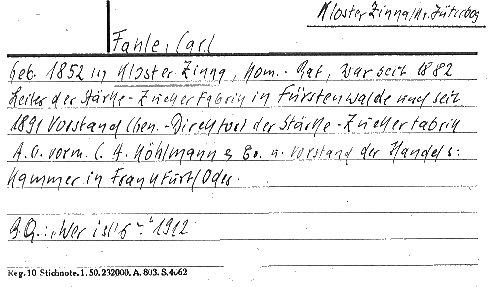 Kloster Zinna/Kr. Jüterbog
Fahle, Carl
geb. 1852 in Kloster Zinna, Kom.-Rat, war seit 1882
Leiter der Stärke-Zuckerfabrik in Fürstenwalde und seit
1891 Vorstand (Gen.-Direktor) der Stärke-Zuckerfabrik
A.G. vorm. C. A. Köhlmann & Co. u. Vorstand der Handels=
Kammer in Frankfurt/Oder.
B.Q.: "Wer ist's" 1912
Reg. 10 Stichnote. 1. 50. 232000. A. 803. S. 4062